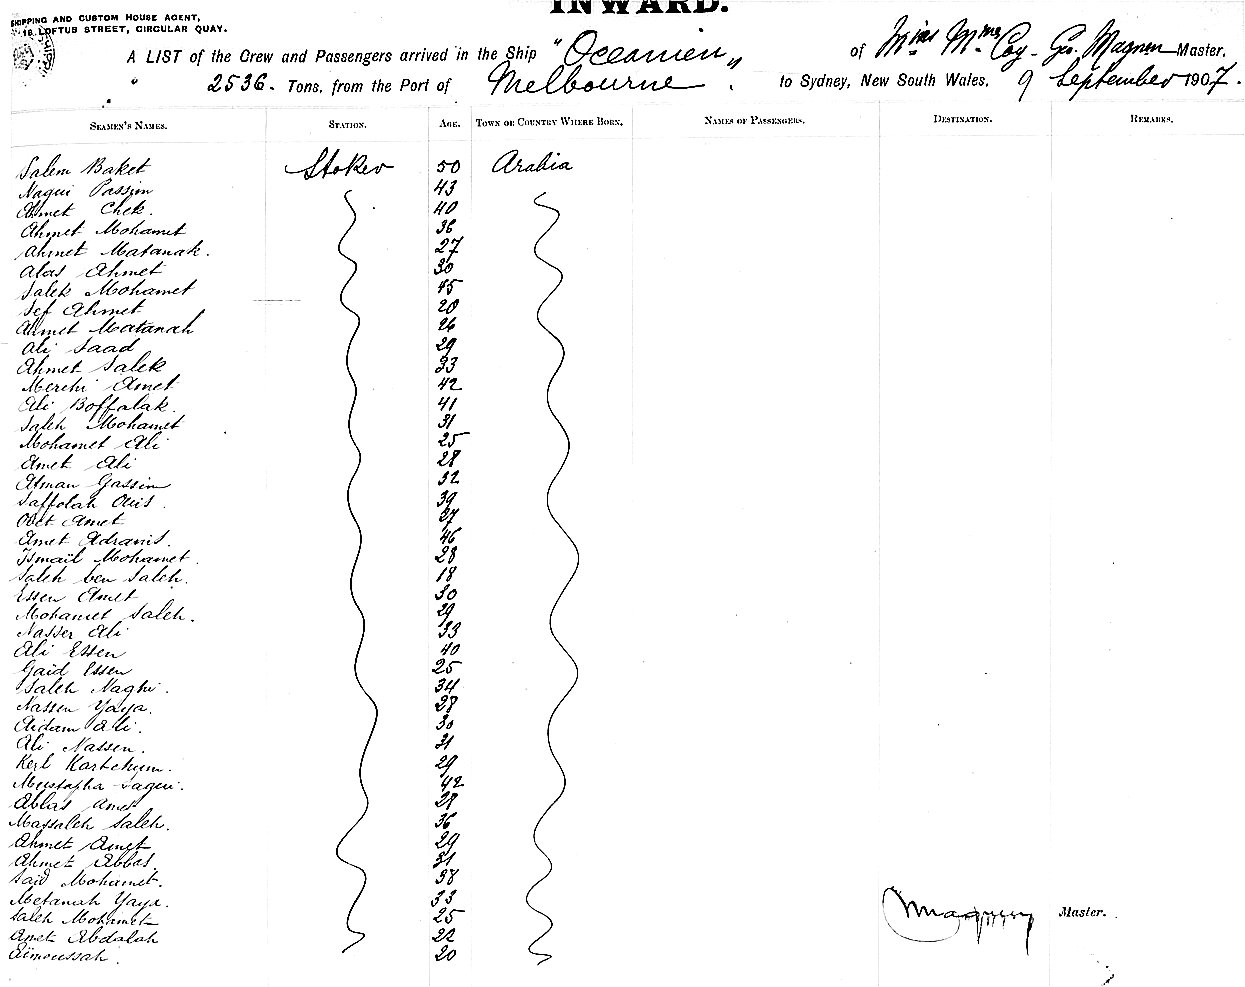 INWARD.
SHIPPING AND CUSTOM HOUSE AGENT,
18, LOFTUS STREET, CIRCULAR QUAY.
A LIST of the Crew and Passengers arrived in the Ship "Oceanien" of Geo. Magnen Master,
" 2536. Tons, from the Port of Melbourne. to Sydney, New South Wales, 9 September 1907.
SEAMEN'S NAMES. STATION. AGE. TOWN OR COUNTRY WHERE BORN. NAMES OF PASSENGERS. DESTINATION. REMARKS.
Salem Baket Stoker 50 Arabia
Nagui Passim 43
Ahmet Chek. 40
Ahmet Mohamet 36
Ahmet Matanak. 27
Alas Ahmet 30
Salek Mohamet 45
Sef Ahmet 20
Ahmet Matanah 26
Ali Saad 29
Ahmet Salek 33
Merchi Amet 42
Ali Boffalak. 41
Saleh Mohamet 31
Mohamet Ali 25
Amet Ali 28
Atman Gassim 32
Saffolah Ouis. 39
Obet Amet 37
Amet Adranis. 46
Ismaïl Mohamet. 28
Saleh ben Saleh. 18
Essen Amet 30
Mohamet Saleh. 29
Nasser Ali 33
Ali Essen 40
Gaid Essen 25
Saleh Naghi. 34
Nassen Yaya. 28
Aidam Ali. 30
Ali Nassen. 31
Kerl Kartchum. 29
Mustapha Sagui. 42
Abbas Amet 28
Massaleh Saleh. 36
Ahmet Amet 29
Ahmet Abbas. 31
Saïd Mohamet. 38
Metanah Yaya. 33
Saleh Mohamet 25
Amet Abdalah 22
Aïmoussah. 20
Magnen Master.